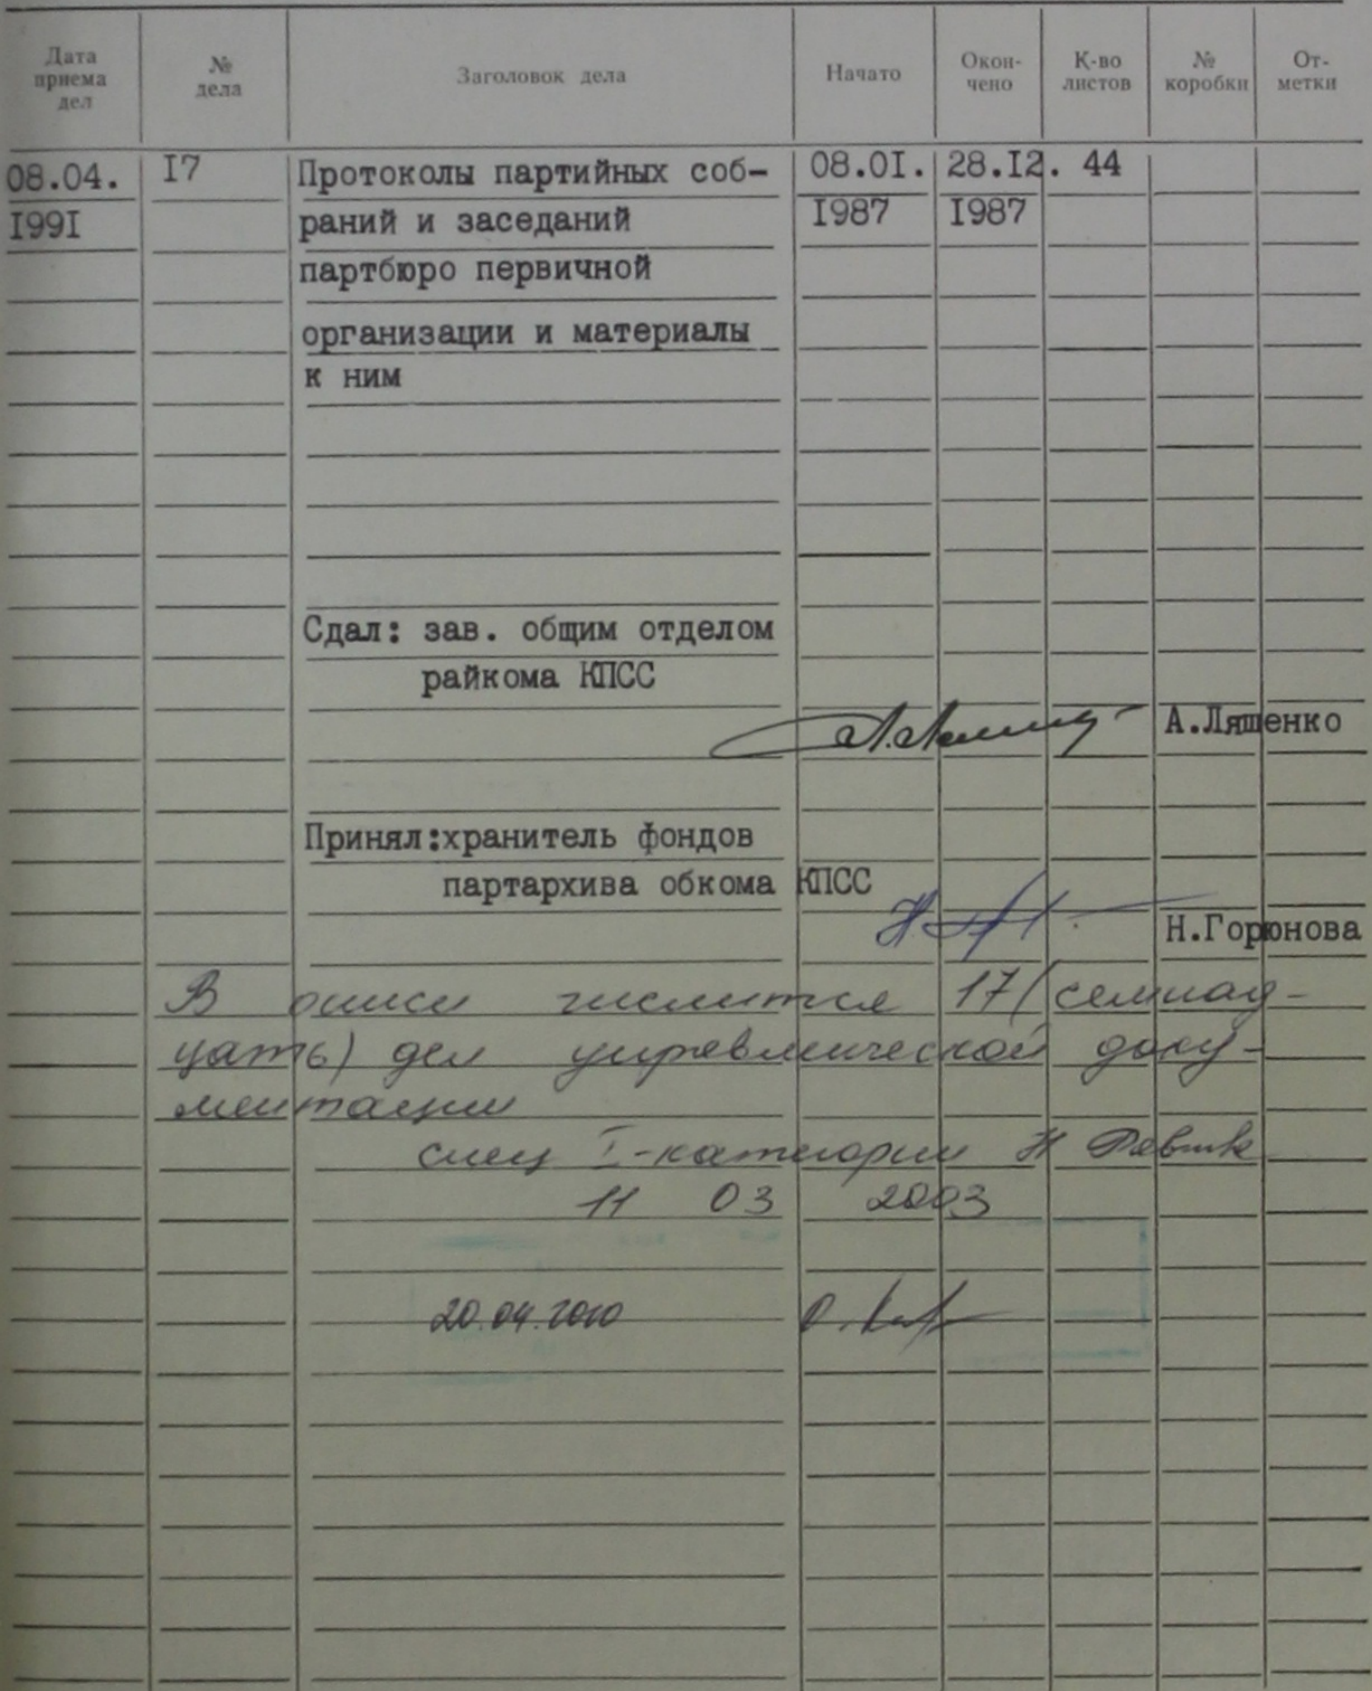 Дата приема дел № дела Заголовок дела Начато Окон- чено К-во листов № коробки От- метки
08.04. I7 Протоколы партийных соб- 08.0I. 28.I2. 44
I99I раний и заседаний I987 I987
партбюро первичной
организации и материалы
к ним
Сдал: зав. общим отделом
райкома КПСС
А.Ляшенко
Принял:хранитель фондов
партархива обкома КПСС
Н.Горюнова
В описи числится 17 (семнад-
цать) дел управленческой доку-
ментации
спец I-категории Н
11 03 2003
20.04.2010